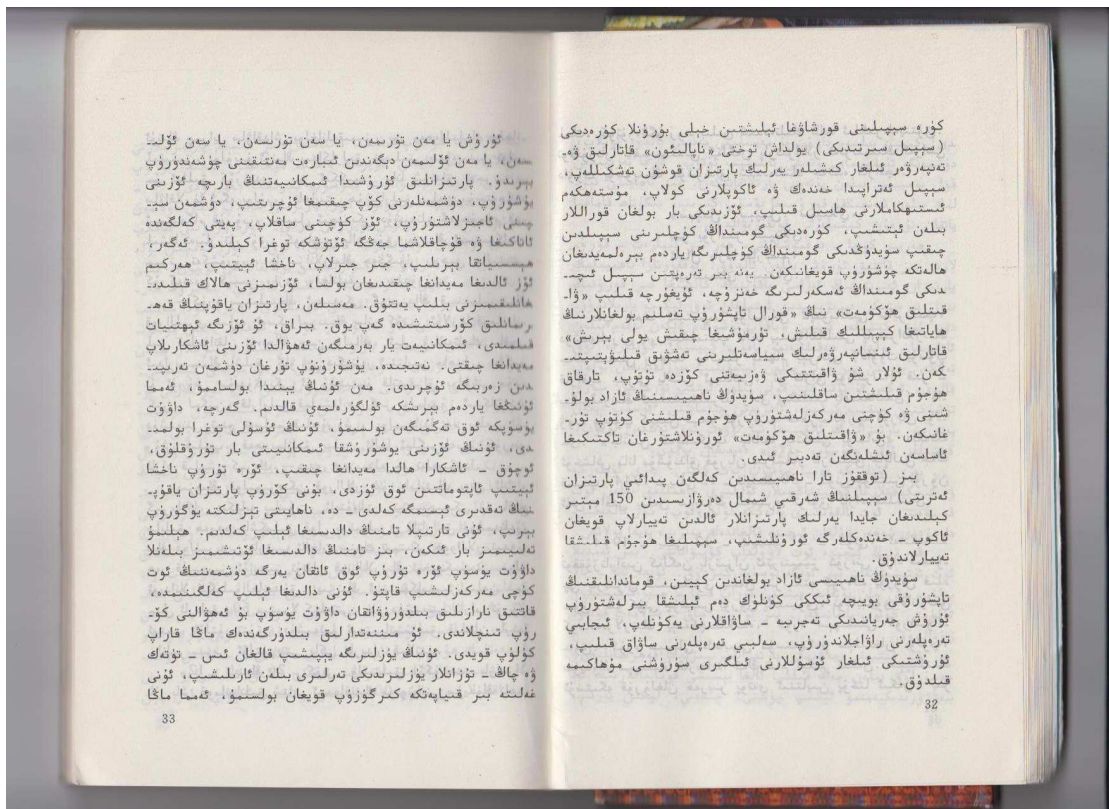 كۈرە سېپىلىنى قورشاۋغا ئېلىشتىن خېلى بۇرۇنلا كۈرەدىكى
(سېپىل سىرتىدىكى) يولداش توختى «ناپالېئون» قاتارلىق ۋە-
تەنپەرۋەر ئىلغار كىشىلەر يەرلىك پارتىزان قوشۇن تەشكىللەپ،
سېپىل ئەتراپىدا خەندەك ۋە ئاكوپلارنى كولاپ، مۇستەھكەم
ئىستىھكاملارنى ھاسىل قىلىپ، ئۆزىدىكى بار بولغان قوراللار
بىلەن ئېتىشىپ، كۈرەدىكى گومىنداڭ كۈچلىرىنى سېپىلدىن
چىقىپ سۈيدۈڭدىكى گومىنداڭ كۈچلىرىگە ياردەم بېرەلمەيدىغان
ھالەتكە چۈشۈرۈپ قويغانىكەن. يەنە بىر تەرەپتىن سېپىل ئىچى-
دىكى گومىنداڭ ئەسكەرلىرىگە خەنزۇچە، ئۇيغۇرچە قىلىپ «ۋا-
قىتلىق ھۆكۈمەت» نىڭ «قورال تاپشۇرۇپ تەسلىم بولغانلارنىڭ
ھاياتىغا كېپىللىك قىلىش، تۇرمۇشىغا چىقىش يولى بېرىش»
قاتارلىق ئىنسانپەرۋەرلىك سىياسەتلىرىنى تەشۋىق قىلىۋېتىپتى-
كەن. ئۇلار شۇ ۋاقىتتىكى ۋەزىيەتنى كۆزدە تۇتۇپ، تارقاق
ھۇجۇم قىلىشتىن ساقلىنىپ، سۈيدۈڭ ناھىيىسىنىڭ ئازاد بولۇ-
شىنى ۋە كۈچنى مەركەزلەشتۈرۈپ ھۇجۇم قىلىشنى كۈتۈپ تۇر-
غانىكەن. بۇ «ۋاقىتلىق ھۆكۈمەت» ئورۇنلاشتۇرغان تاكتىكىغا
ئاساسەن ئىشلەنگەن تەدبىر ئىدى.
بىز (توققۇز تارا ناھىيىسىدىن كەلگەن پىدائىي پارتىزان
ئەترىتى) سېپىلنىڭ شەرقىي شىمال دەرۋازىسىدىن 150 مېتىر
كېلىدىغان جايدا يەرلىك پارتىزانلار ئالدىن تەييارلاپ قويغان
ئاكوپ - خەندەكلەرگە ئورۇنلىشىپ، سېپىلىغا ھۇجۇم قىلىشقا
تەييارلاندۇق.
سۈيدۈڭ ناھىيىسى ئازاد بولغاندىن كېيىن، قوماندانلىقنىڭ
تاپشۇرۇقى بويىچە ئىككى كۈنلۈك دەم ئېلىشقا بىرلەشتۈرۈپ
ئۇرۇش جەريانىدىكى تەجرىبە - ساۋاقلارنى يەكۈنلەپ، ئىجابىي
تەرەپلەرنى راۋاجلاندۇرۇپ، سەلبىي تەرەپلەرنى ساۋاق قىلىپ،
ئۇرۇشتىكى ئىلغار ئۇسۇللارنى ئىلگىرى سۈرۈشنى مۇھاكىمە
قىلدۇق.
32
ئۇرۇش يا مەن تۇرىمەن، يا سەن تۇرىسەن، يا سەن ئۆلى-
سەن، يا مەن ئۆلىمەن دېگەندىن ئىبارەت مەنتىقىنى چۈشەندۈرۈپ
بېرىدۇ. پارتىزانلىق ئۇرۇشىدا ئىمكانىيەتنىڭ بارىچە ئۆزىنى
يوشۇرۇپ، دۈشمەنلەرنى كۆپ چىقىمغا ئۇچرىتىپ، دۈشمەن سې-
پىنى ئاجىزلاشتۇرۇپ، ئۆز كۈچىنى ساقلاپ، پەيتى كەلگەندە
ئاتاكىغا ۋە قۇچاقلاشما جەڭگە ئۆتۈشكە توغرا كېلىدۇ. ئەگەر،
ھېسسىياتقا بېرىلىپ، جىنز جىرلاپ، ناخشا ئېيتىپ، ھەركىم
ئۆز ئالدىغا مەيدانغا چىقىدىغان بولسا، ئۆزىمىزنى ھالاك قىلىدى-
غانلىقىمىزنى بىلىپ يەتتۇق. مەسىلەن، پارتىزان ياقۇپنىڭ قەھ-
رىمانلىق كۆرسىتىشىدە گەپ يوق. بىراق، ئۇ ئۆزىگە ئېھتىيات
قىلمىدى، ئىمكانىيەت يار بەرمىگەن ئەھۋالدا ئۆزىنى ئاشكارىلاپ
مەيدانغا چىقتى. نەتىجىدە، يوشۇرۇنۇپ تۇرغان دۈشمەن تەرىپى-
دىن زەربىگە ئۇچرىدى. مەن ئۇنىڭ يېنىدا بولساممۇ، ئەمما
ئۇنىڭغا ياردەم بېرىشكە ئۈلگۈرەلمەي قالدىم. گەرچە، داۋۇت
يۈسۈپكە ئوق تەگمىگەن بولسىمۇ، ئۇنىڭ ئۇسۇلى توغرا بولمى-
دى، ئۇنىڭ ئۆزىنى يوشۇرۇشقا ئىمكانىيىتى بار تۇرۇقلۇق،
ئوچۇق - ئاشكارا ھالدا مەيدانغا چىقىپ، ئۆرە تۇرۇپ ناخشا
ئېيتىپ ئاپتوماتتىن ئوق ئۈزدى، بۇنى كۆرۈپ پارتىزان ياقۇپ-
نىڭ تەقدىرى ئېسىمگە كەلدى - دە، ناھايىتى تېزلىكتە يۈگۈرۈپ
بېرىپ، ئۇنى تارتىپلا تامنىڭ دالدىسىغا ئېلىپ كەلدىم. ھېلىمۇ
تەلىيىمىز بار ئىكەن، بىز تامنىڭ دالدىسىغا ئۆتىشىمىز بىلەنلا
داۋۇت يۈسۈپ ئۆرە تۇرۇپ ئوق ئاتقان يەرگە دۈشمەننىڭ ئوت
كۈچى مەركەزلىشىپ قاپتۇ. ئۇنى دالدىغا ئېلىپ كەلگىنىمدە،
قاتتىق نارازىلىق بىلدۈرۈۋاتقان داۋۇت يۈسۈپ بۇ ئەھۋالنى كۆ-
رۈپ تىنچلاندى. ئۇ مىننەتدارلىق بىلدۈرگەندەك ماڭا قاراپ
كۈلۈپ قويدى. ئۇنىڭ يۈزلىرىگە يېپىشىپ قالغان ئىس - تۈتەك
ۋە چاڭ - توزانلار يۈزلىرىدىكى تەرلىرى بىلەن ئارىلىشىپ، ئۇنى
غەلىتە بىر قىياپەتكە كىرگۈزۈپ قويغان بولسىمۇ، ئەمما ماڭا
33